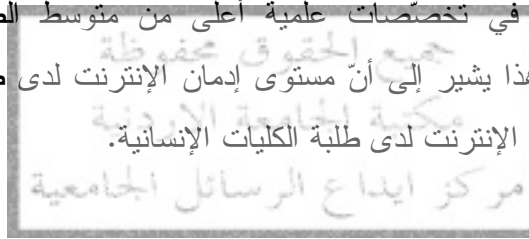 في تخصّصات علمية أعلى من متوسط
جميع الحقوق محفوظة
هذا يشير إلى أنّ مستوى إدمان الإنترنت لدى
مكتبة الجامعة الاردنية
الإنترنت لدى طلبة الكليات الإنسانية.
مركز ايداع الرسائل الجامعية